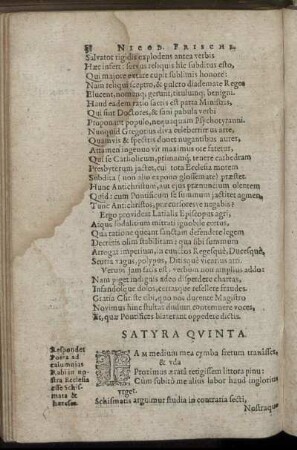 88 NICOD. FRISCHL.
Salvator rigidis explodens antea verbis
Hæc infert: servus reliquis hic subditus esto,
Qui majore extare cupit sublimis honore:
Nam reliqui sceptro, & pulcro diademate Reges
Elucent, nomanqꝫ gerunt, titulumqꝫ benigni.
Haud eadem ratio sacris est pacta Ministris,
Qui sint Doctores, & sani pabula verbi
Proponant populo, nequaquam Psychotyranni.
Nunquid Gregorius diva celebrior is arte,
Quamvis & spectris duort augantibus auret,
Attamen ingenuo vir maximus ore fatetur,
Qui se Catholicum, primamqꝫ tenere cathedram
Presbyterum jactet, cui tota Ecclesia morem
Subdita (non alio expono glossemate) præstet.
Hunc Antichristum, aut ejus prænuncium olentem
Quid: cum Pontificum se summum jactitet agmen,
Tunc Antichristos, præcursoresve negabis?
Ergo provident Latialis Episcopus agri,
Atque sodalitium mitrati ignobile cœtus,
Qua ratione queant sanctam defendere legem
Decretis olim stabilitam: qua sibi summum
Arrogat imperium, in cunctos Regesque, Ducesque,
Scutia vagus, polypos, Ditique vicarius atri.
Verum jam satis est: verbum non amplius addam
Nam piget indignis adeo disperdere chartas,
Infandosque dolos, tetrasque resellere fraudes.
Gratia Christe tibi, quo nos ducente Magistro
Novimus hinc stultas dividum contemnere voces,
Et, quæ Pontifices blaterant oppedere dictis.
SATYRA QVINTA.
Respondet
Poeta ad
calumnias
Rabini no-
stra Ecclesia
esse Schis-
mata &
hæreses.
IAm medium mea cymba fretum tranasset,
& vda
Proximus æratâ tetigissem littora pinu:
Cùm subitò me alius labor haud inglorius
vrget.
Schismatis arguimur studia in contraria secti,
Nostraque